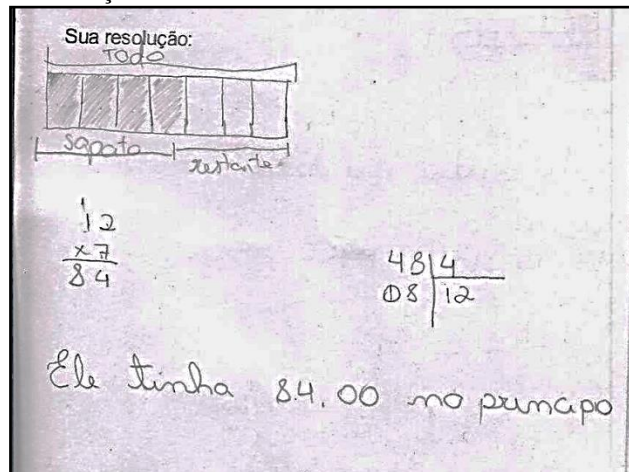 Sua resolução:
TODO
sapato restante
12
x 7
84
48|4
08|12
Ele tinha 84.00 no principo